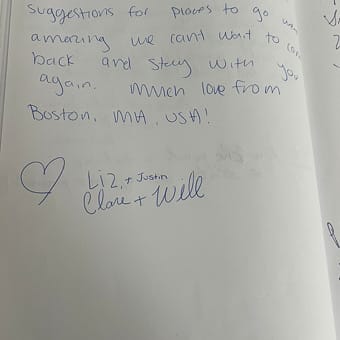 suggestions for places to go
amazing we can't wait to
back and stay with you
again. Much love from
Boston, MA, USA!
Liz, + Justin
Clare + Will